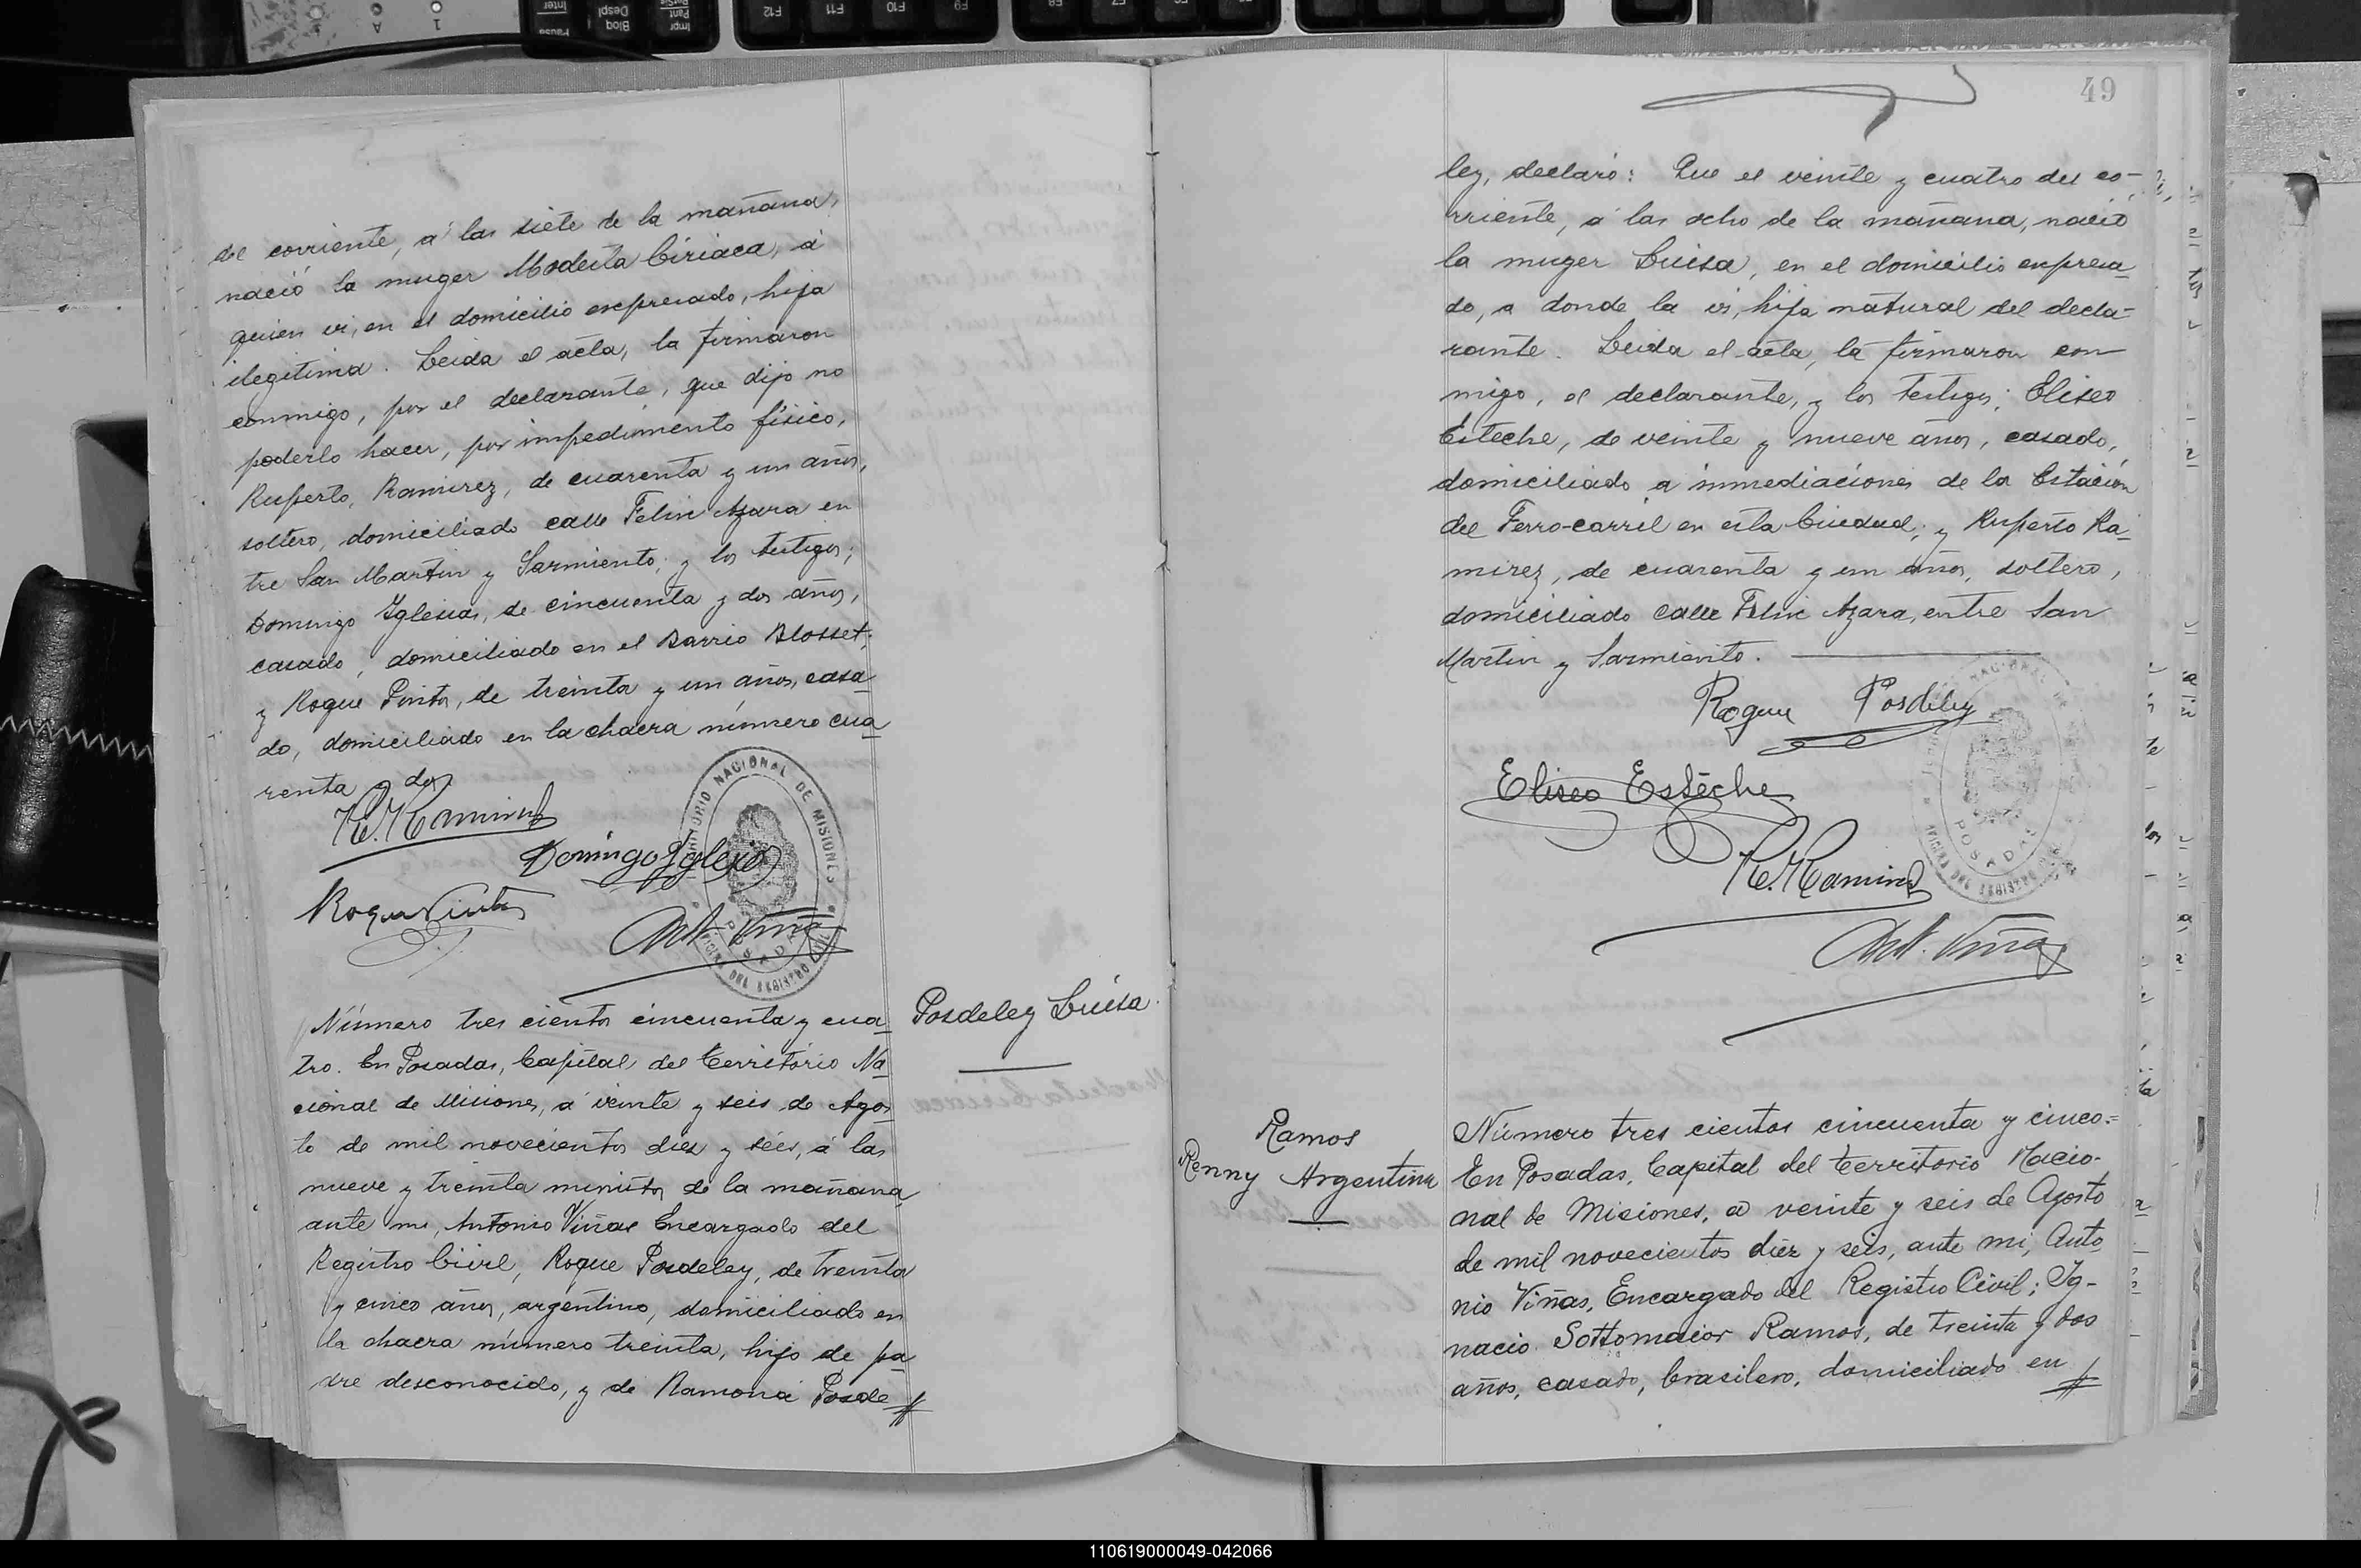 del corriente, á las siete de la mañana,
nació la muger Modesta Ciriaca, á
quien vi, en el domicilio expresado, hija
ilegitima. Leida el acta, la firmaron
conmigo, por el declarante, que dijo no
poderlo hacer, por impedimento físico,
Ruperto Ramirez, de cuarenta y un años,
soltero, domiciliado calle Felix Azara en
tre San Martin y Sarmiento; y los testigos;
Domingo Iglesias, de cincuenta y dos años,
casado, domiciliado en el Barrio Blosset;
y Roque Pintos, de treinta y un años, casa
do, domiciliado en la chacra número cua
renta y dos
R. Ramirez
Domingo Iglesias
Roque Pintos
Ant. Viñas
TERRITORIO NACIONAL DE MISIONES
POSADAS
OFICINA DEL REGISTRO CIVIL
Número tres cientos cincuenta y cua
tro. En Posadas, Capital del Territorio Na
cional de Misiones, á veinte y seis de Agos
to de mil novecientos diez y séis, á las
nueve y treinta minutos de la mañana
ante mi, Antonio Viñas Encargado del
Registro Civil, Roque Posdeley, de treinta
y cinco años, argentino, domiciliado en
la chacra número treinta, hijo de pa
dre desconocido, y de Ramona Posde
Posdeley Luisa
49
ley, declaró: Que el veinte y cuatro del co-
rriente, á las ocho de la mañana, nació
la muger Luisa, en el domicilio expresa
do, a donde la vi, hija natural del decla-
rante. Leida el acta, la firmaron con
migo, el declarante, y los testigos; Eliseo
Esteche, de veinte y nueve años, casado,
domiciliado a inmediaciones de la Estación
del Ferro-carril en esta Ciudad; y Ruperto Ra-
mirez, de cuarenta y un años, soltero,
domiciliado calle Felix Azara, entre San
Martin y Sarmiento.
Roque Posdeley
Eliseo Estèche
R. Ramirez
Ant. Viñas
NACIONAL
POSADAS
OFICINA DEL REGISTRO
Ramos
Renny Argentina
Número tres cientos cincuenta y cinco.=
En Posadas, Capital del territorio Nacio-
nal de Misiones, a veinte y seis de Agosto
de mil novecientos diez y seis, ante mi, Anto
nio Viñas, Encargado del Registro Civil; Ig-
nacio Sottomaior Ramos, de treinta y dos
años, casado, brasilero, domiciliado en
110619000049-042066